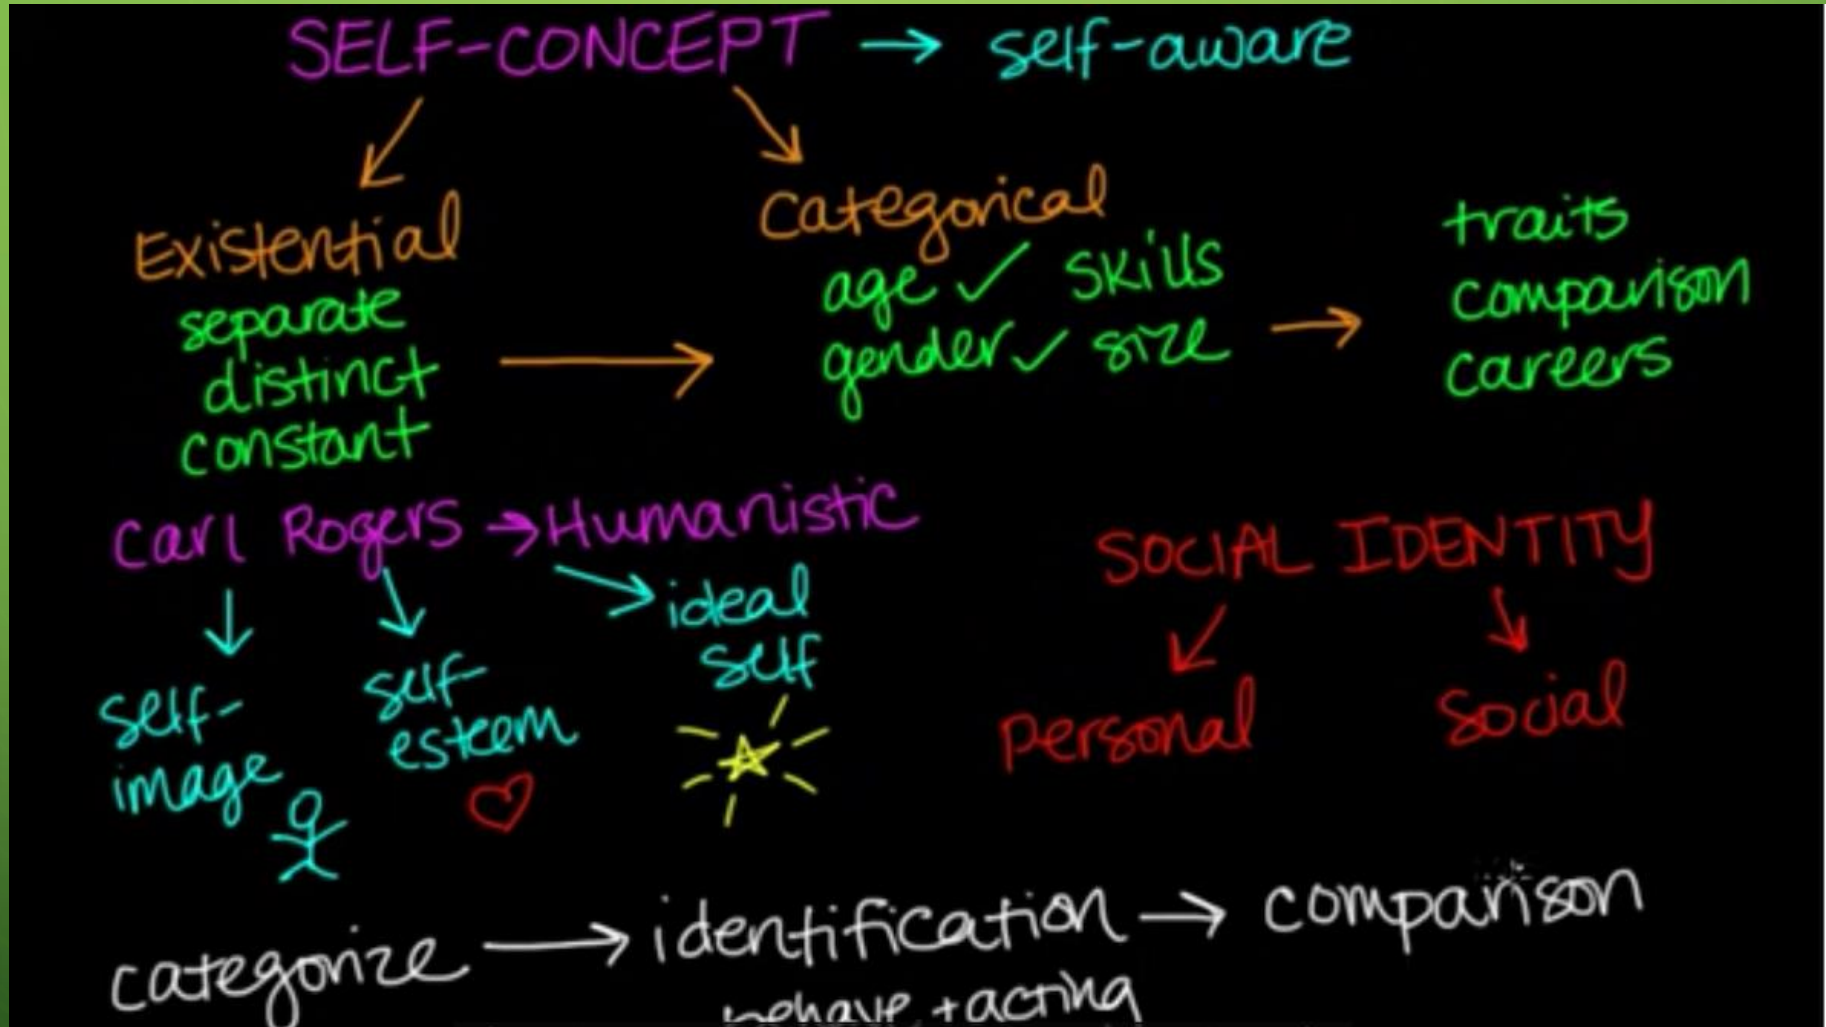 SELF-CONCEPT → self-aware
Existential
separate
distinct
constant
→
Categorical
age ✓ skills
gender ✓ size
→
traits
comparison
careers
Carl Rogers → Humanistic
self-
image
self-
esteem
ideal
self
SOCIAL IDENTITY
personal
social
categorize → identification → comparison
behave + acting